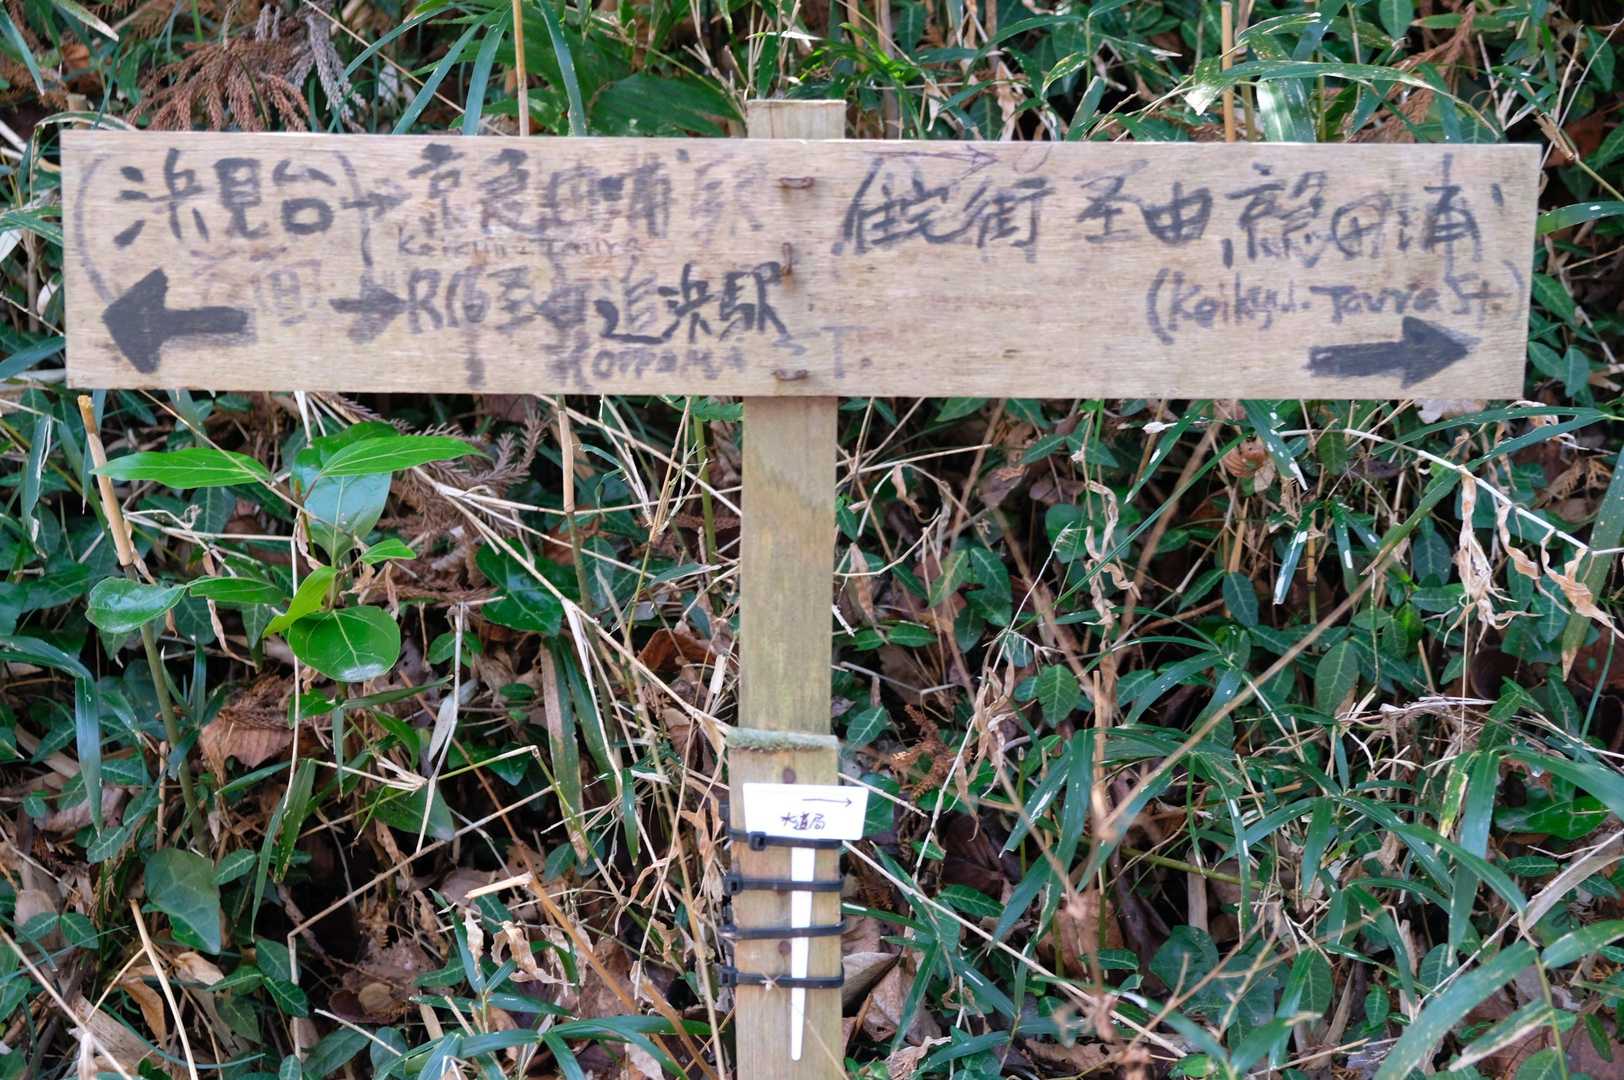 (浜見台)→京急田浦駅
Keikyu-Taura
→R16至由追浜駅
Koppama ST.
(住宅街 至由京急田浦)
(Keikyu-Taura St.)
→
水道局